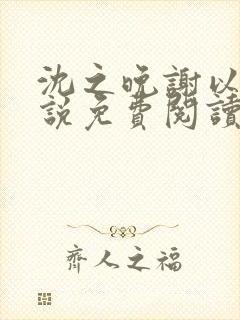 沈之晚謝以
說免費閱讀
齊人之福